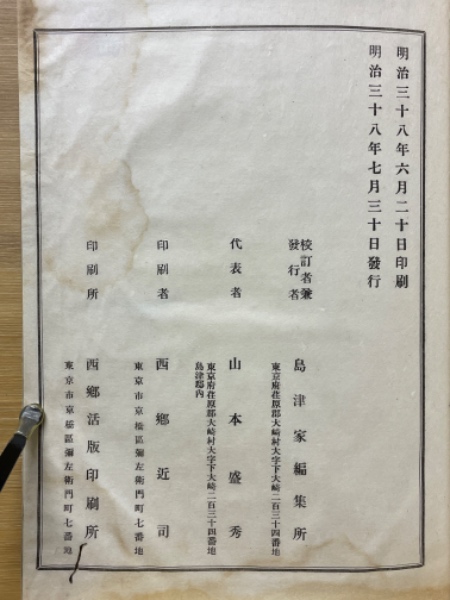 明治三十八年六月二十日印刷
明治三十八年七月三十日發行
校訂者兼
發行者
島津家編集所
東京府荏原郡大崎村大字下大崎二百三十四番地
代表者
山本盛秀
東京府荏原郡大崎村大字下大崎二百三十四番地
島津邸内
印刷者
西鄉近司
東京市京橋區彌左衛門町七番地
印刷所
西鄉活版印刷所
東京市京橋區彌左衛門町七番地